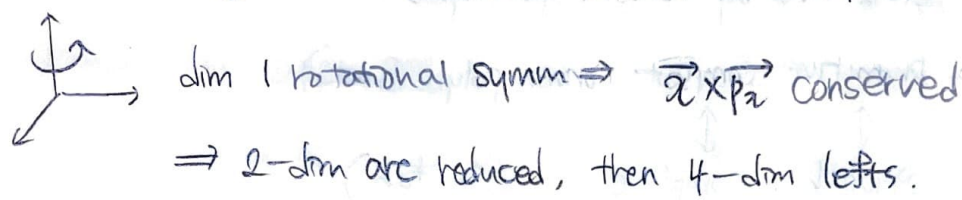 dim 1 rotational symm ⇒ $\vec{x} \times \vec{p_x}$ conserved
⇒ 2-dim are reduced, then 4-dim lefts.